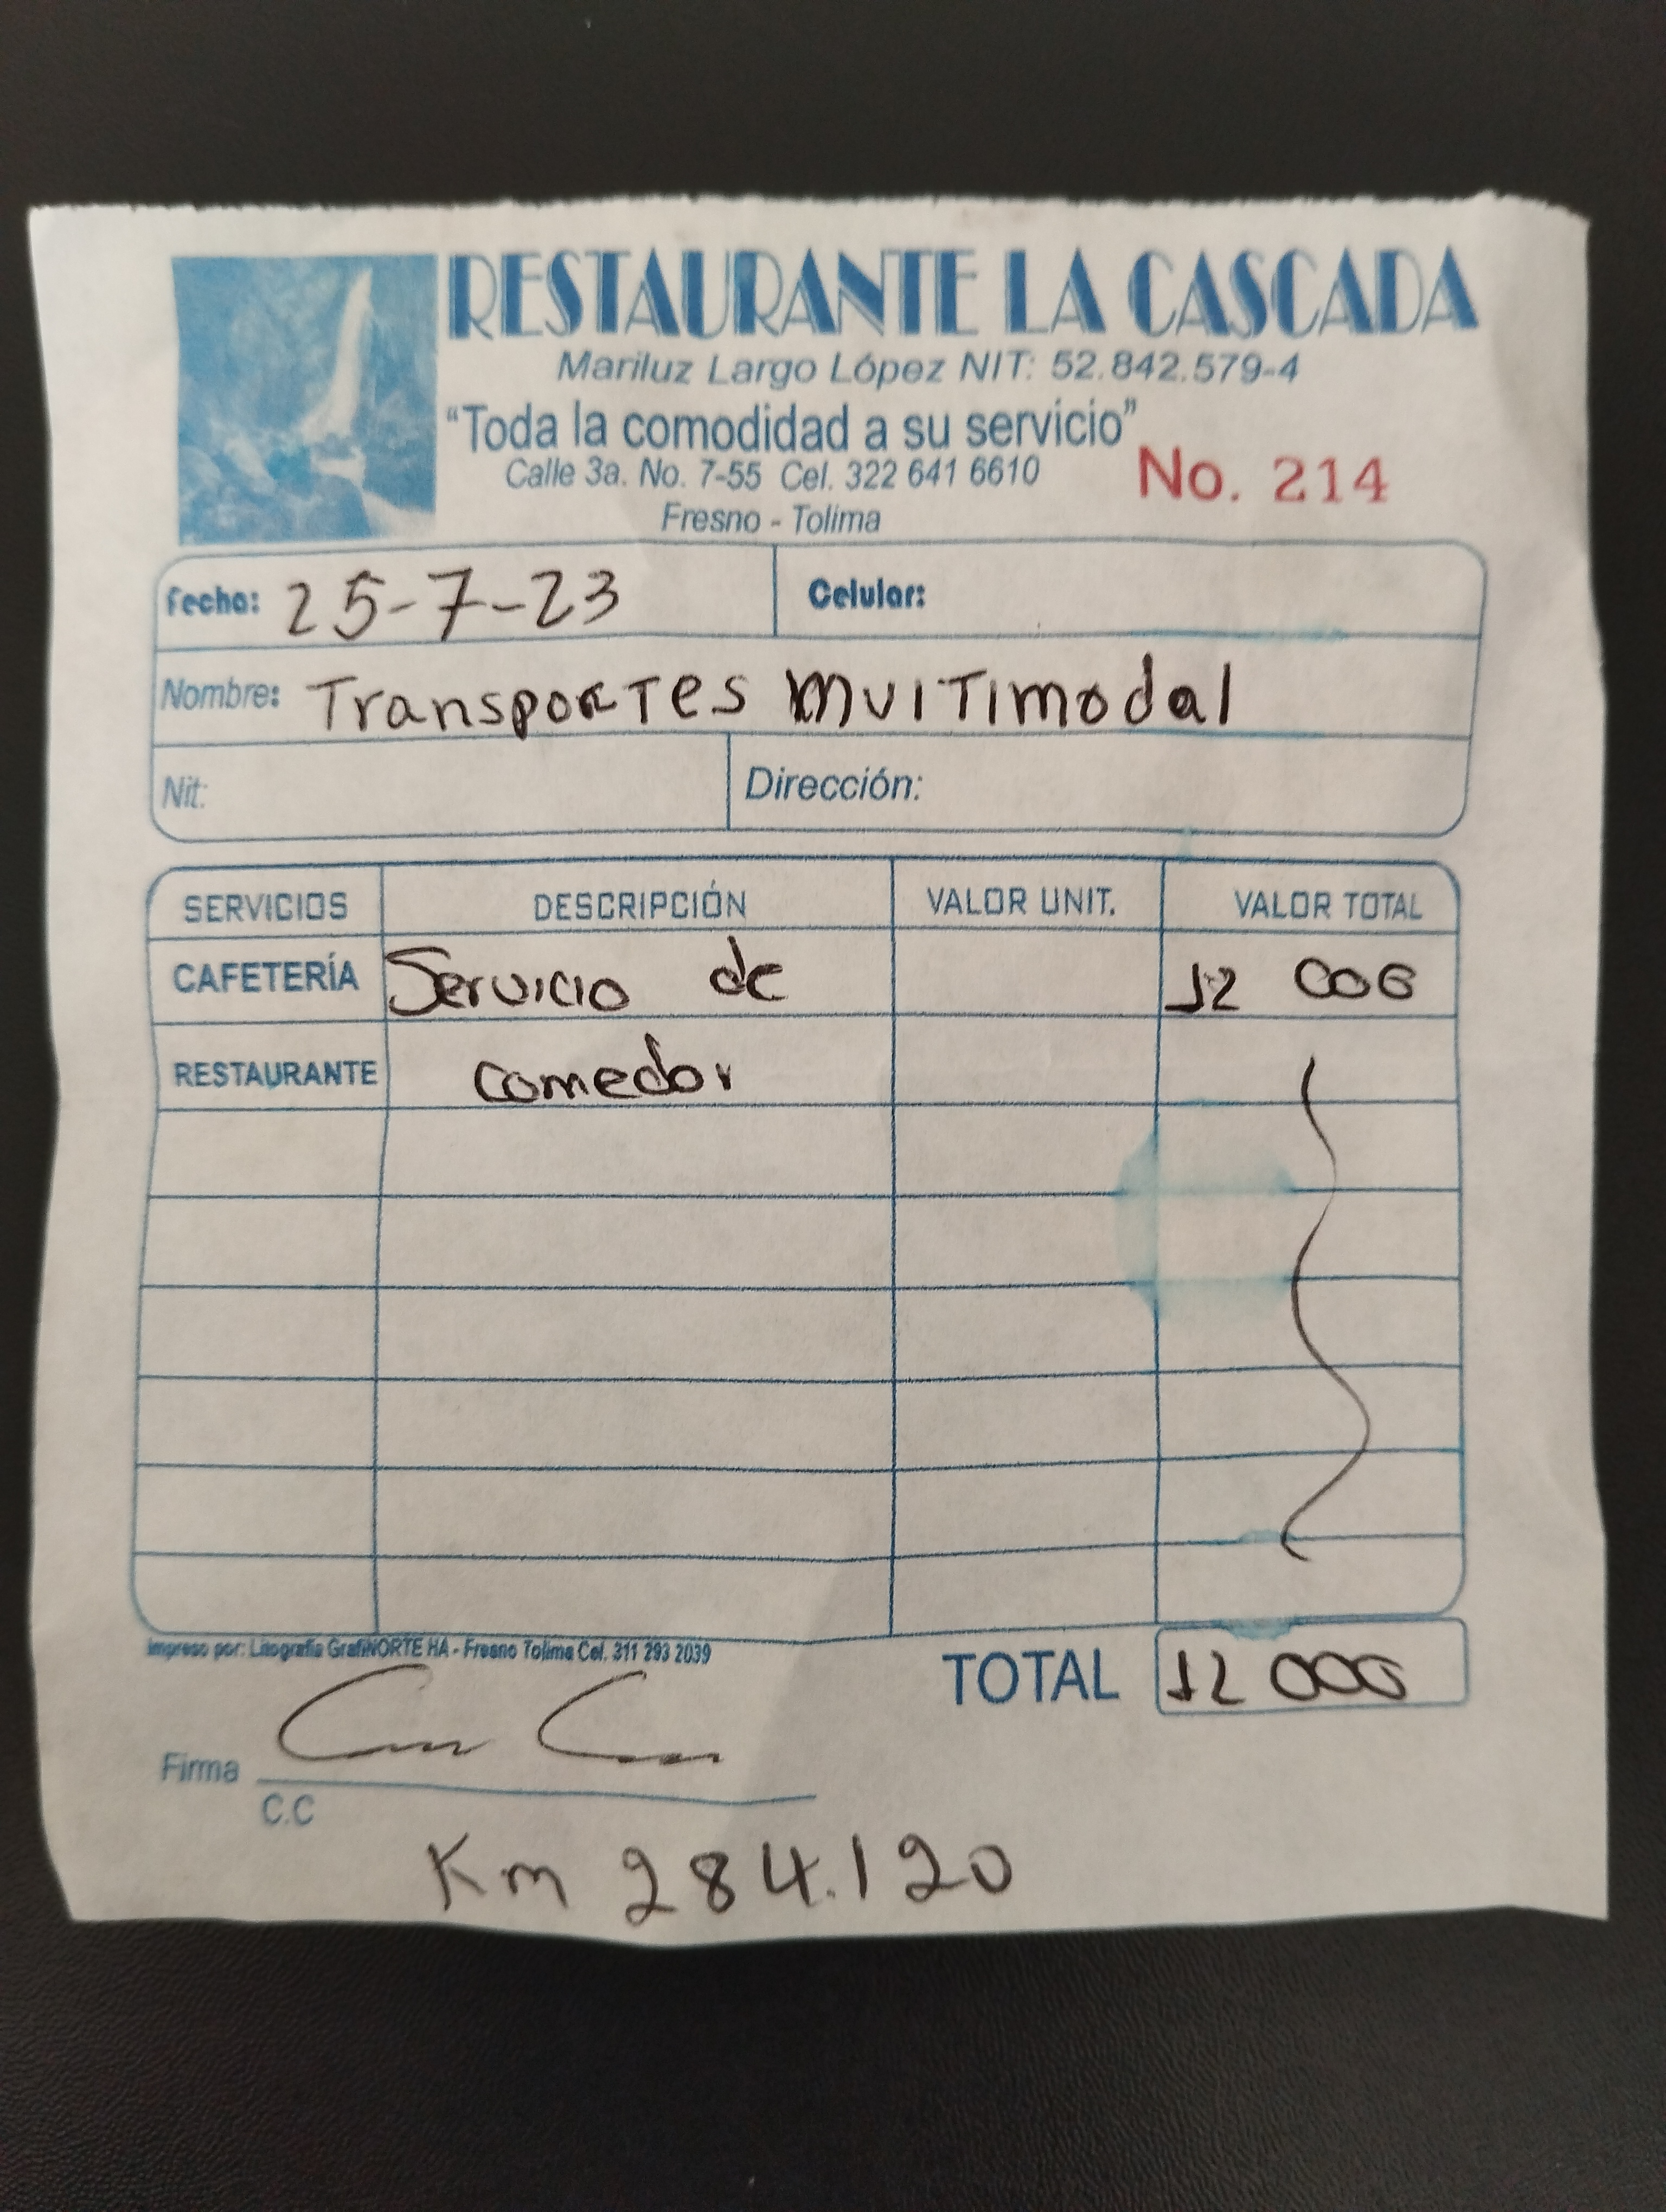 RESTAURANTE LA CASCADA
Mariluz Largo López NIT: 52.842.579-4
"Toda la comodidad a su servicio"
Calle 3a. No. 7-55 Cel. 322 641 6610
No. 214
Fresno - Tolima
Fecha: 25-7-23 Celular:
Nombre: Transportes multimodal
Nit: Dirección:
SERVICIOS DESCRIPCIÓN VALOR UNIT. VALOR TOTAL
CAFETERÍA Servicio de 12 000
RESTAURANTE comedor
Impreso por: Litografía GrafiNORTE HA - Fresno Tolima Cel. 311 293 2039
TOTAL 12 000
Firma
C.C
Km 284.120